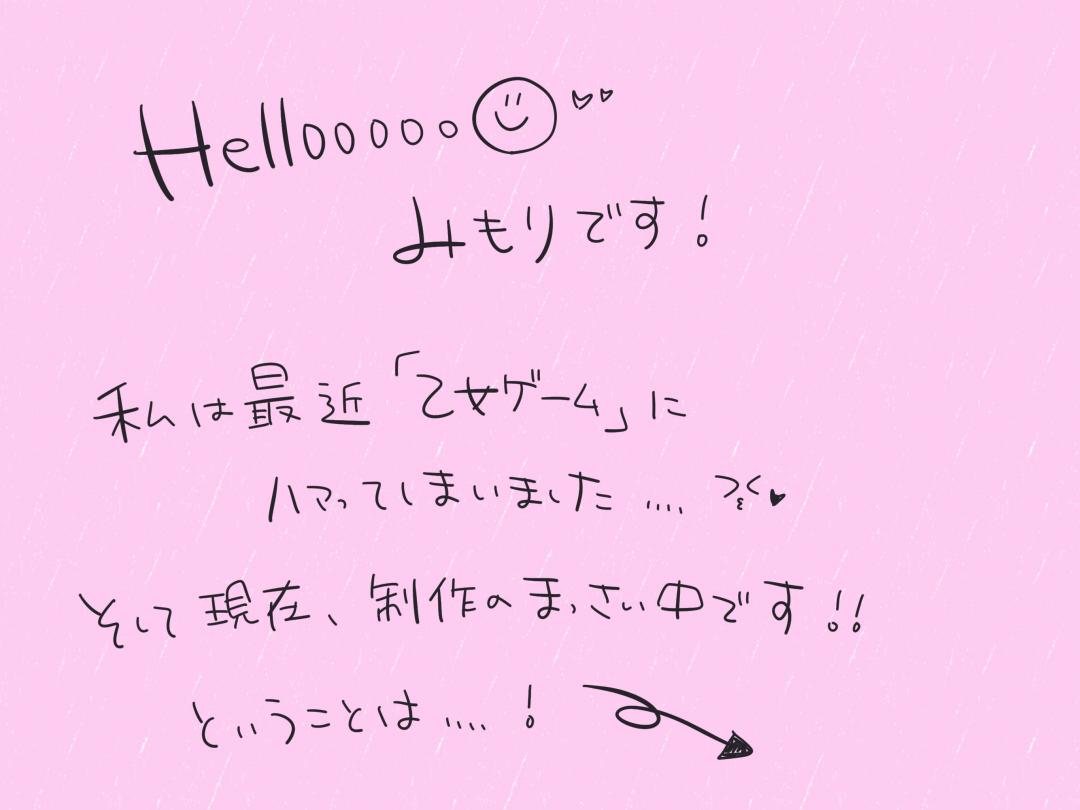 Hellooooo
みもりです！
私は最近「乙女ゲーム」に
ハマってしまいました....
そして現在、制作のまっさい中です!!
ということは....！